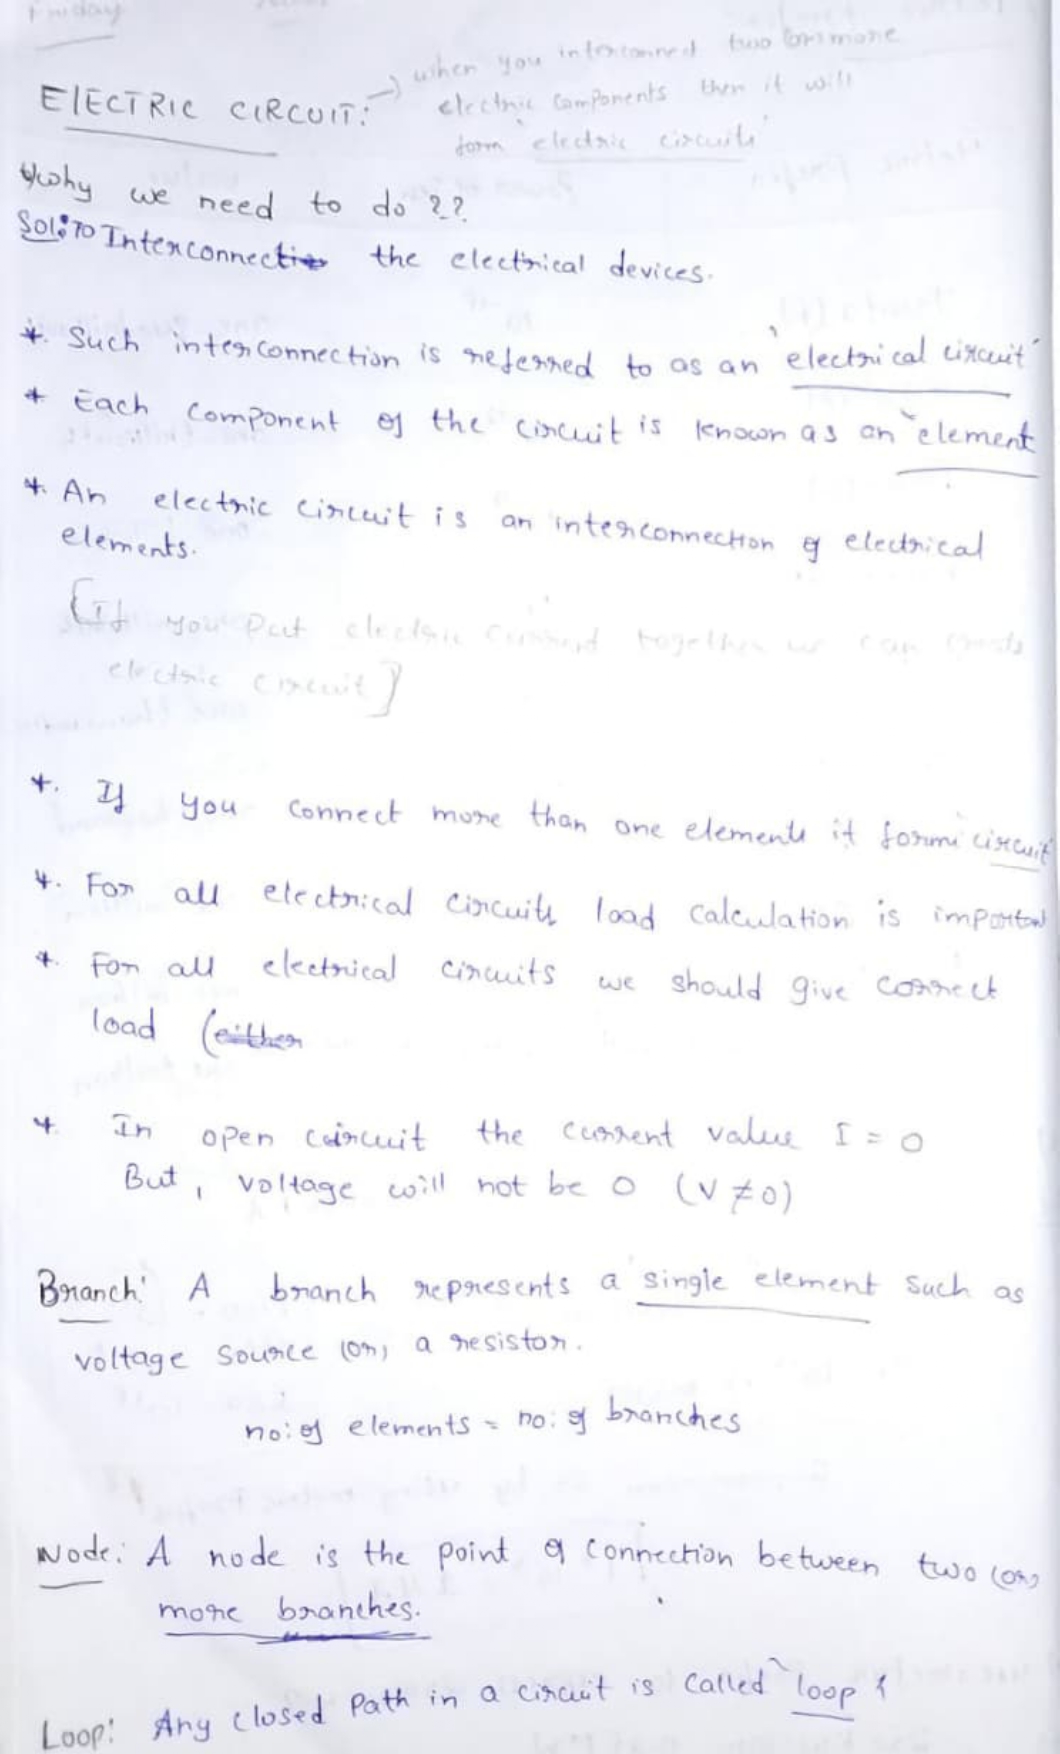 Friday
→ when you interconnect two (or) more
ELECTRIC CIRCUIT:
electric components then it will
form 'electric circuits'
Why we need to do ??
Sol: To Interconnect the electrical devices.
* Such interconnection is referred to as an 'electrical circuit'
* Each component of the circuit is known as an 'element
* An electric circuit is an interconnection of electrical
elements.
[If you put electric together we can
electric circuit]
* If you connect more than one elements it forms circuit
* For all electrical circuits load calculation is important
* For all electrical circuits we should give correct
load (either
* In open circuit the current value I = 0
But, voltage will not be 0 (V ≠ 0)
Branch: A branch represents a single element such as
voltage source (or) a resistor.
no: of elements = no: of branches
Node: A node is the point of connection between two (or)
more branches.
Loop: Any closed path in a circuit is called 'loop'